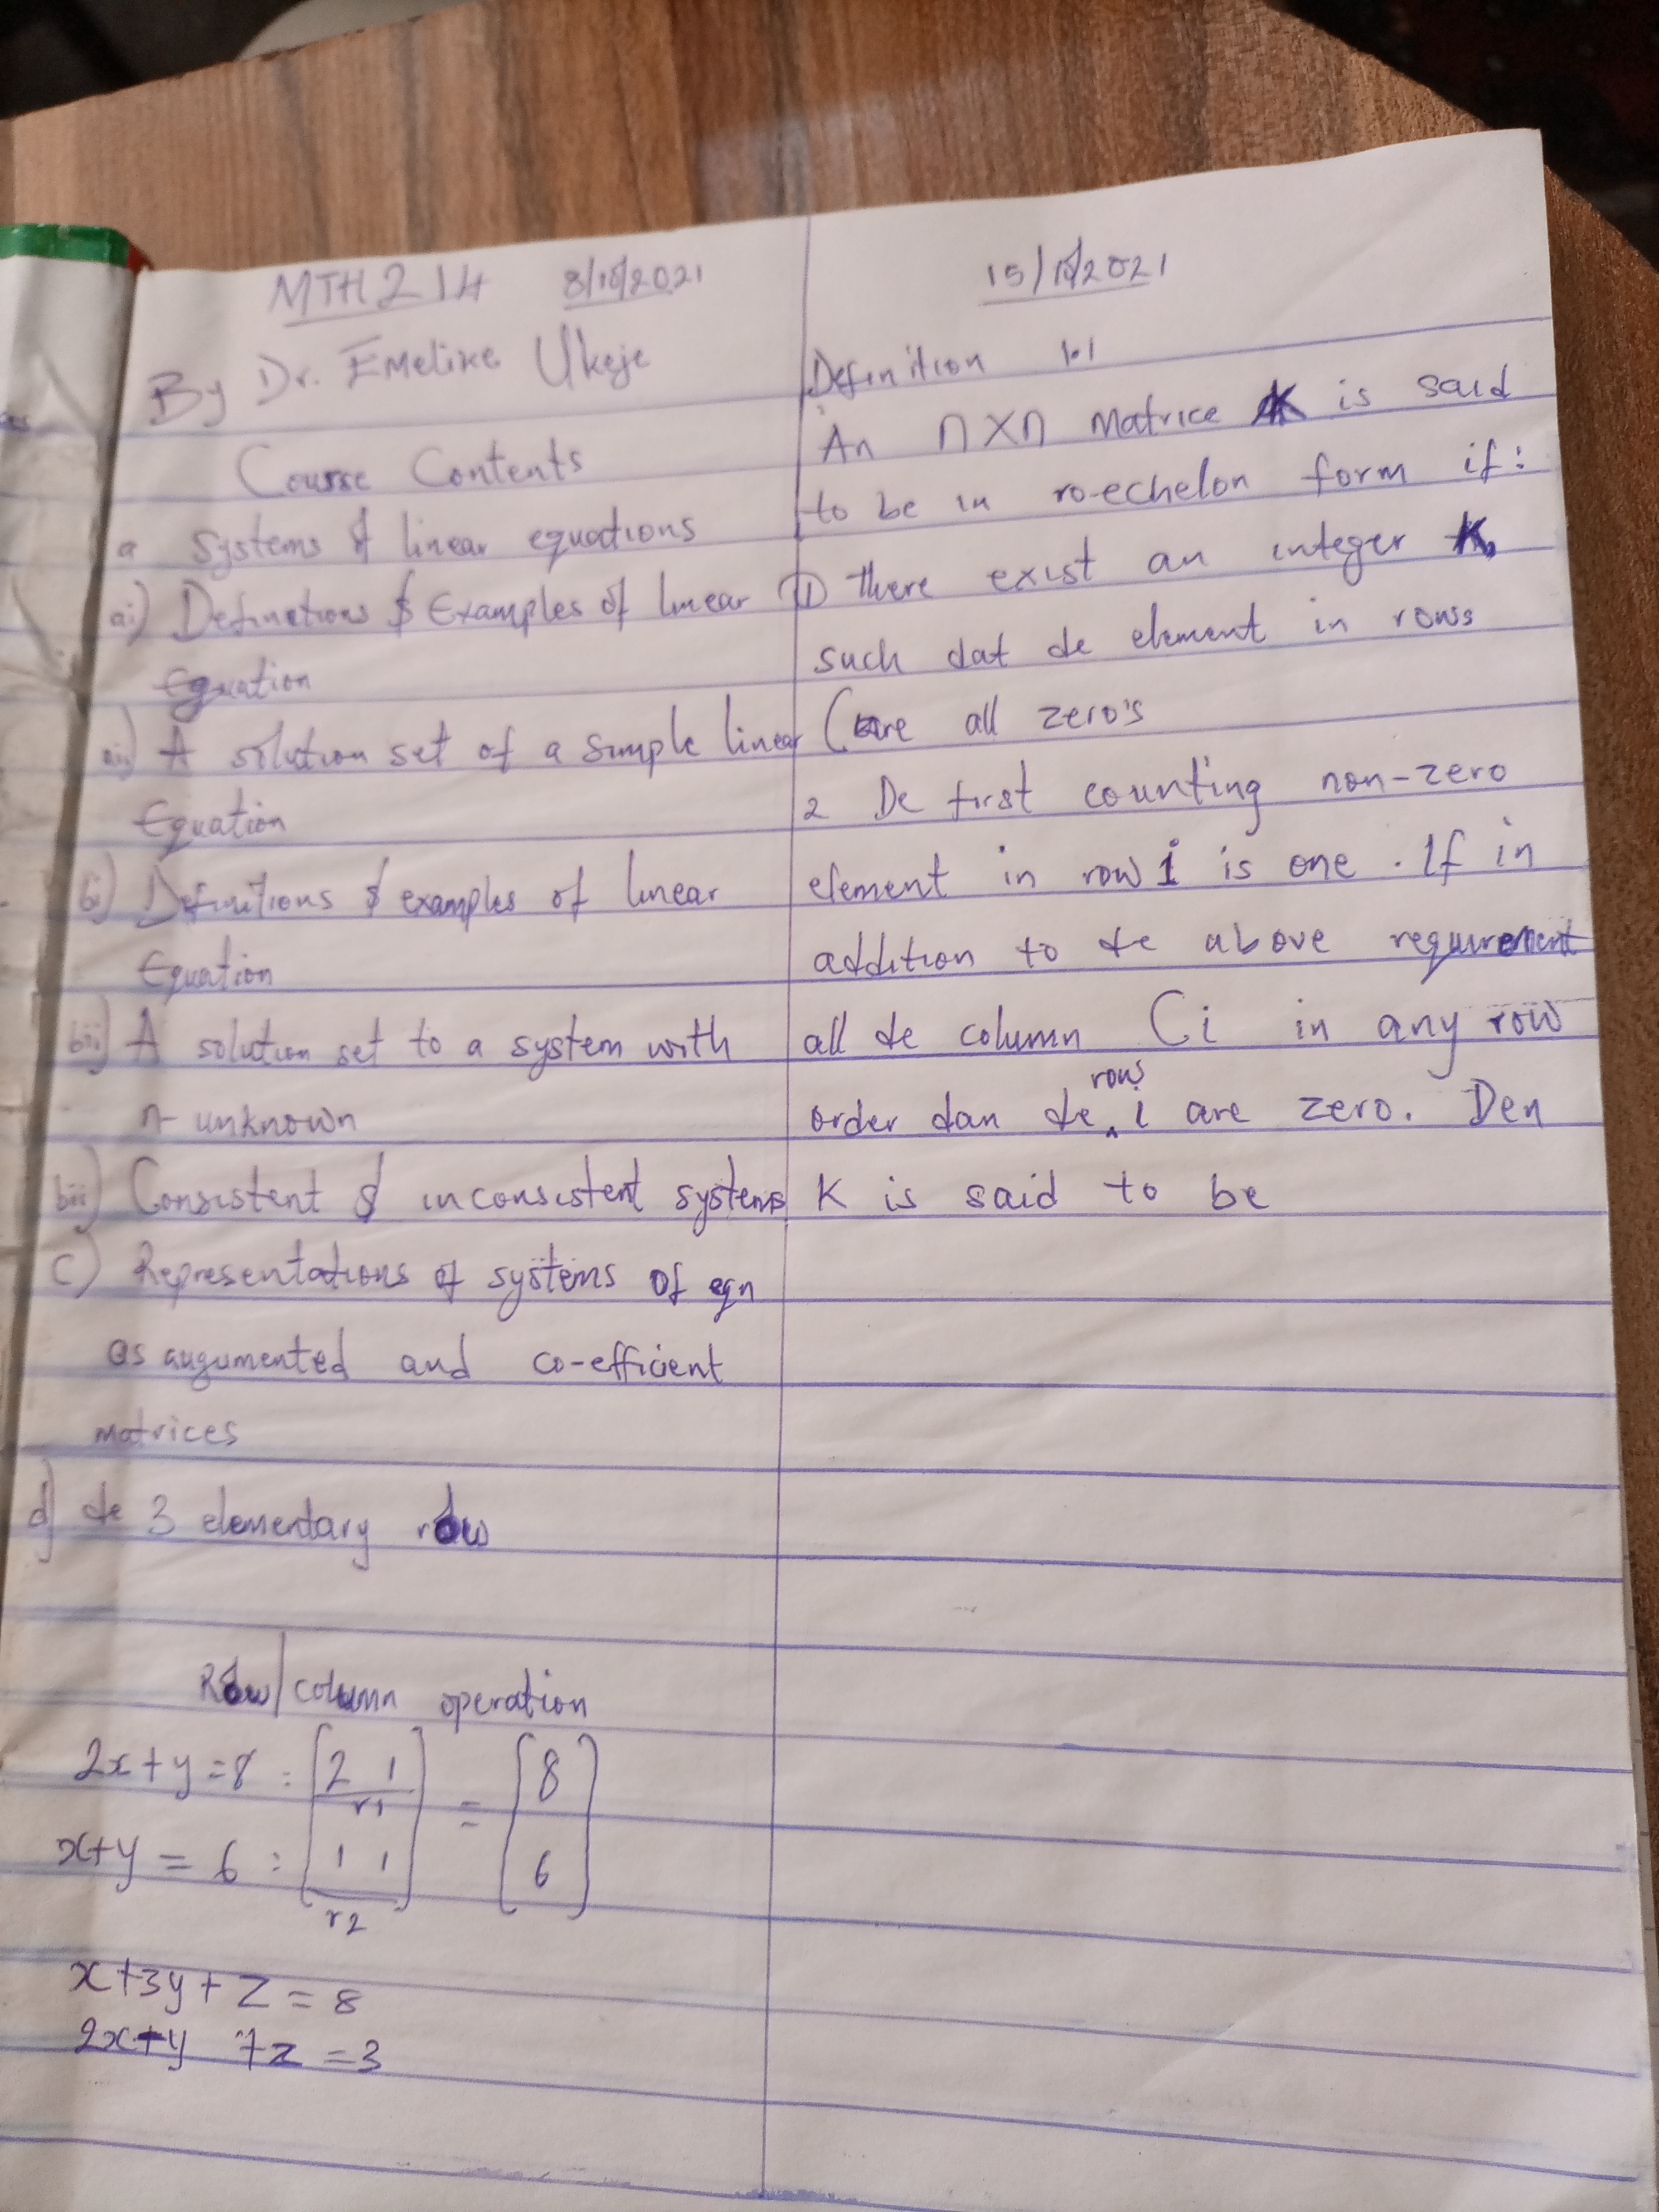 MTH 214 8/10/2021
By Dr. Emelike Ukeje
Course Contents
a systems of linear equations
ai) Definetions & Examples of linear
Equation
aii) A solution set of a simple linear
Equation
bi) Definitions & examples of linear
Equation
bii) A solution set to a system with
n- unknown
biii) Consistent & inconsistent systems
c) Representations of systems of eqn
as augumented and co-efficient
matrices
d) de 3 elementary row
Row/column operation
2x+y=8 : [2 1] = [8]
r1
x+y = 6 : [1 1] [6]
r2
x+3y+z=8
2x+y 7z=3
15/10/2021
Definition 1.1
An n×n Matrice K is said
to be in ro-echelon form if:
① there exist an integer K,
such dat de element in rows
(are all zero's
2 De first counting non-zero
element in row i is one. If in
addition to de above requirement
all de column Ci in any row
order dan de rows i are zero. Den
K is said to be